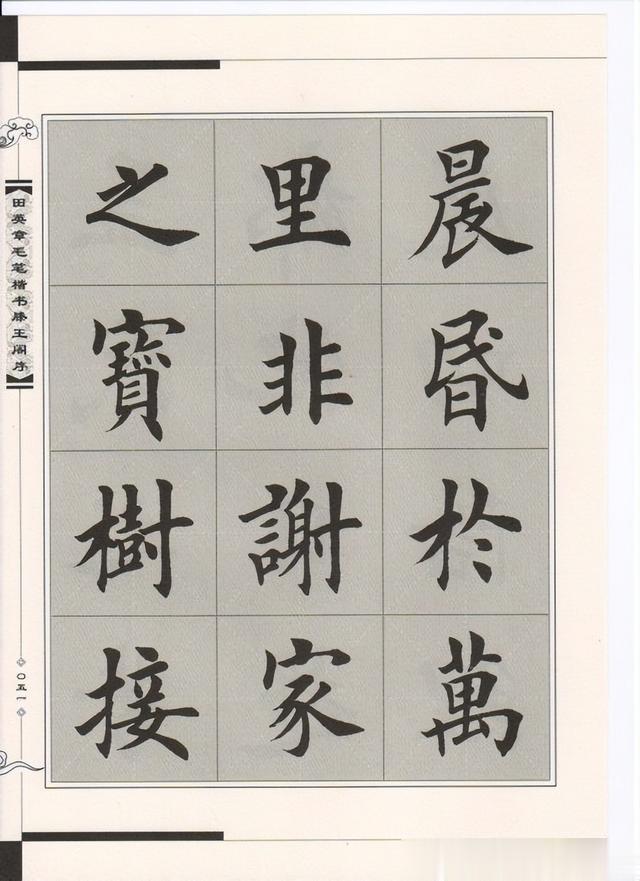 晨昬於萬
里非謝家
之寶樹接
田英章毛笔楷书滕王阁序
〇五一